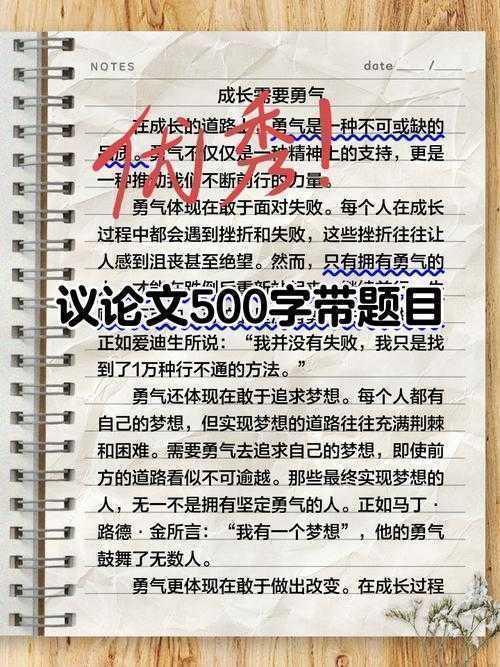 NOTES
date /
成长需要勇气
在成长的道路上，勇气是一种不可或缺的
品质。勇气不仅仅是一种精神上的支持，更是
一种推动我们不断前行的力量。
优秀！
勇气体现在敢于面对失败。每个人在成长
过程中都会遇到挫折和失败，这些挫折往往让
人感到沮丧甚至绝望。然而，只有拥有勇气的
议论文500字带题目
正如爱迪生所说：“我并没有失败，我只是找
到了1万种行不通的方法。”
勇气还体现在敢于追求梦想。每个人都有
自己的梦想，但实现梦想的道路往往充满荆棘
和困难。需要勇气去追求自己的梦想，即使前
方的道路看似不可逾越。那些最终实现梦想的
人，无一不是拥有坚定勇气的人。正如马丁·
路德·金所言：“我有一个梦想”，他的勇气
鼓舞了无数人。
勇气更体现在敢于做出改变。在成长过程